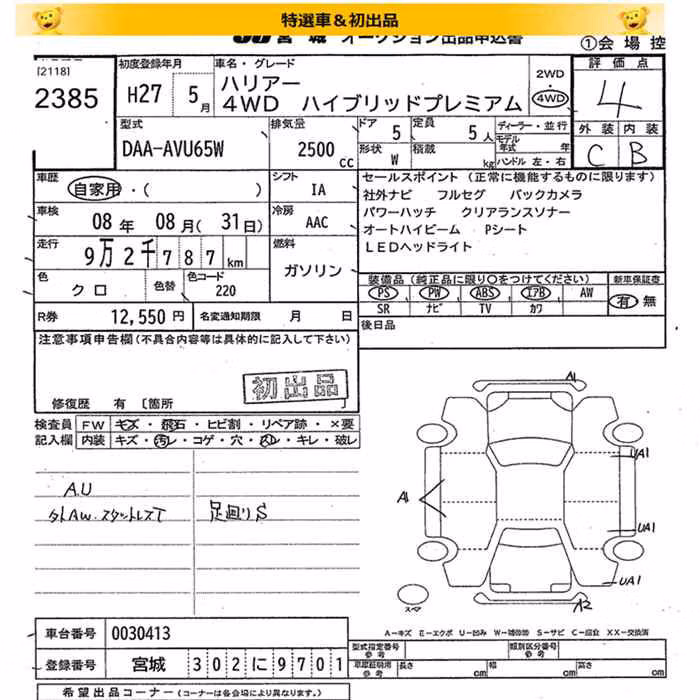 特選車＆初出品
JU 宮城 オークション出品申込書
①会 場 控
[2118]
2385
初度登録年月
H27 5月
車名・グレード
ハリアー
4WD ハイブリッドプレミアム
2WD
・
4WD
評 価 点
4
外 装 内 装
C B
型式
DAA-AVU65W
排気量
2500 cc
ドア 5
定員 5人
ディーラー・並行
モデル年式 年
形状 W
積載 kg
ハンドル 左・右
車歴
自家用・( )
シフト
IA
セールスポイント (正常に機能するものに限ります)
社外ナビ フルセグ バックカメラ
パワーハッチ クリアランスソナー
オートハイビーム Pシート
LEDヘッドライト
車検
08年 08月( 31日)
冷房
AAC
走行
9万2千787km
燃料
ガソリン
色
クロ
色替
色コード
220
装備品 (純正品に限り○をつけてください)
新車保証書
PS PW ABS エアB AW
有・無
SR ナビ TV カワ
R券 12,550 円
名変通知期限 月 日
後日品
注意事項申告欄 (不具合内容等は具体的に記入して下さい)
初出品
修復歴 有 [箇所
検査員記入欄
FW キズ・飛石・ヒビ割・リペア跡・×要
内装 キズ・汚レ・コゲ・穴・凹レ・キレ・破レ
A.U
外AW.スタッドレスT
足廻りS
A1
UA1
A1
UA1
UA1
A2
スペア
A-キズ E-エクボ U-凹み W-補修跡 S-サビ C-腐食 XX-交換済
車台番号 0030413
登録番号 宮城 302に9701
型式指定番号 参考
類別区分番号 参考
車庫証明用 参考 長さ cm 幅 cm 高さ cm
希望出品コーナー (コーナーは各会場により異なります。)